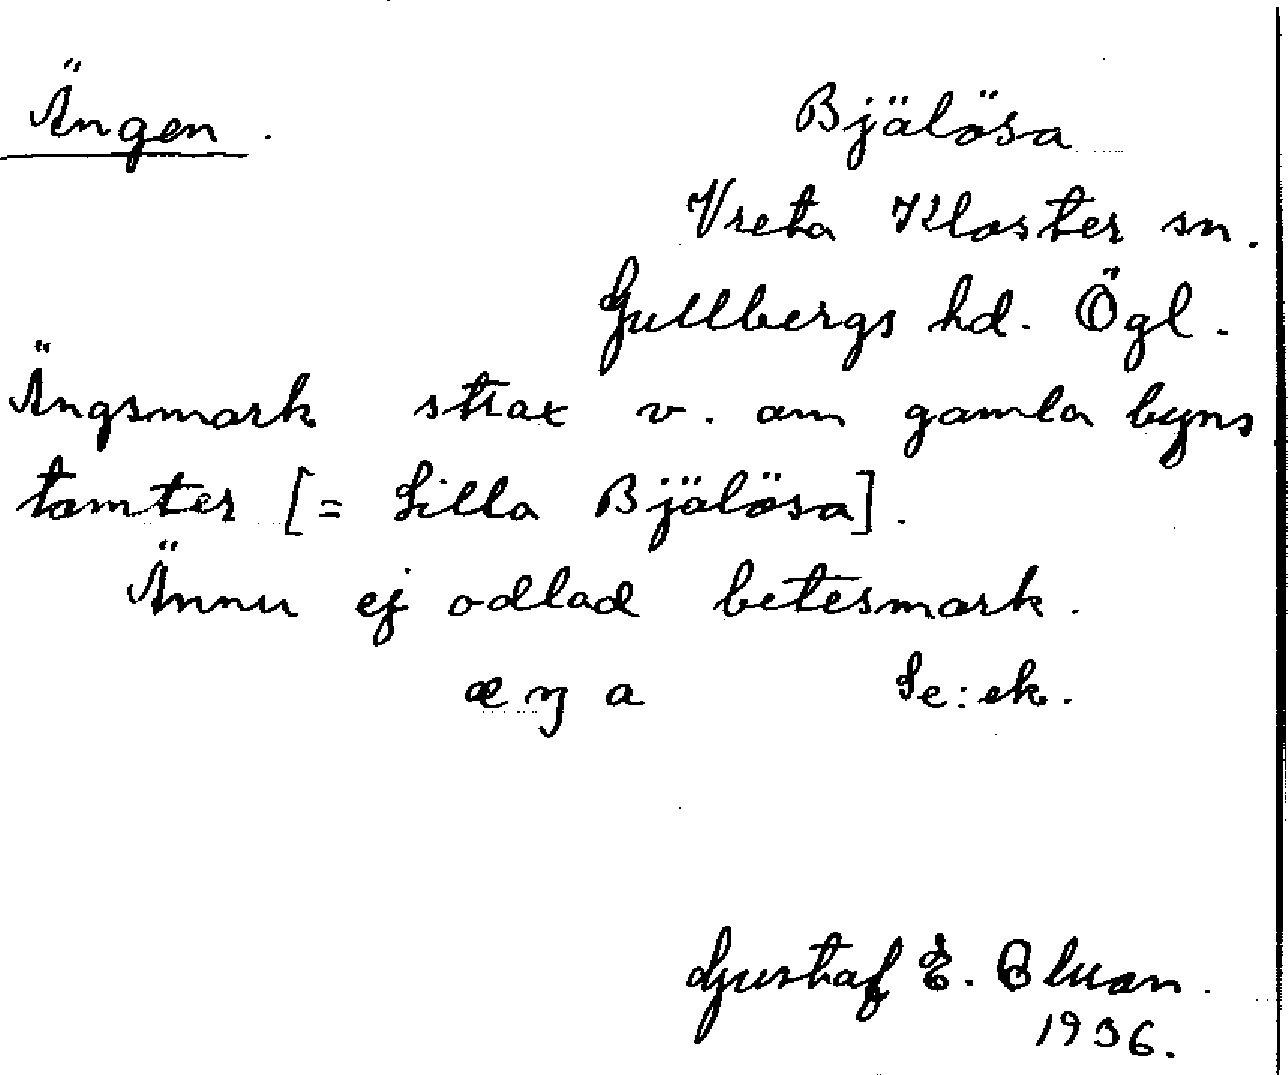 Ängen.
Bjälösa
Vreta Kloster sn.
Gullbergs hd. Ögl.
Ängsmark strax v. om gamla byns
tomter [= Lilla Bjälösa].
Ännu ej odlad betesmark.
æŋa Se: ek.
Gustaf E.
1936.